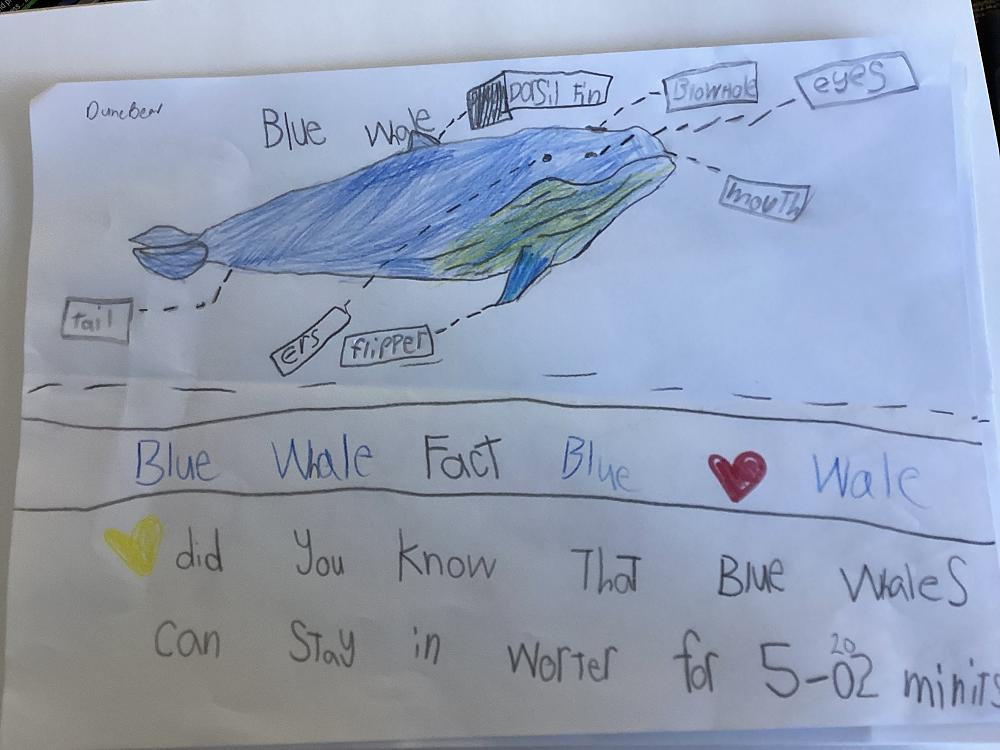 DuneBear
Blue Wale
Dorsil Fin
Blowhole
eyes
mouTh
tail
ers
flipper
Blue Whale Fact Blue Wale
did You Know ThaT Blue WhaleS
Can STay in WorTer for 5-02 minits
20